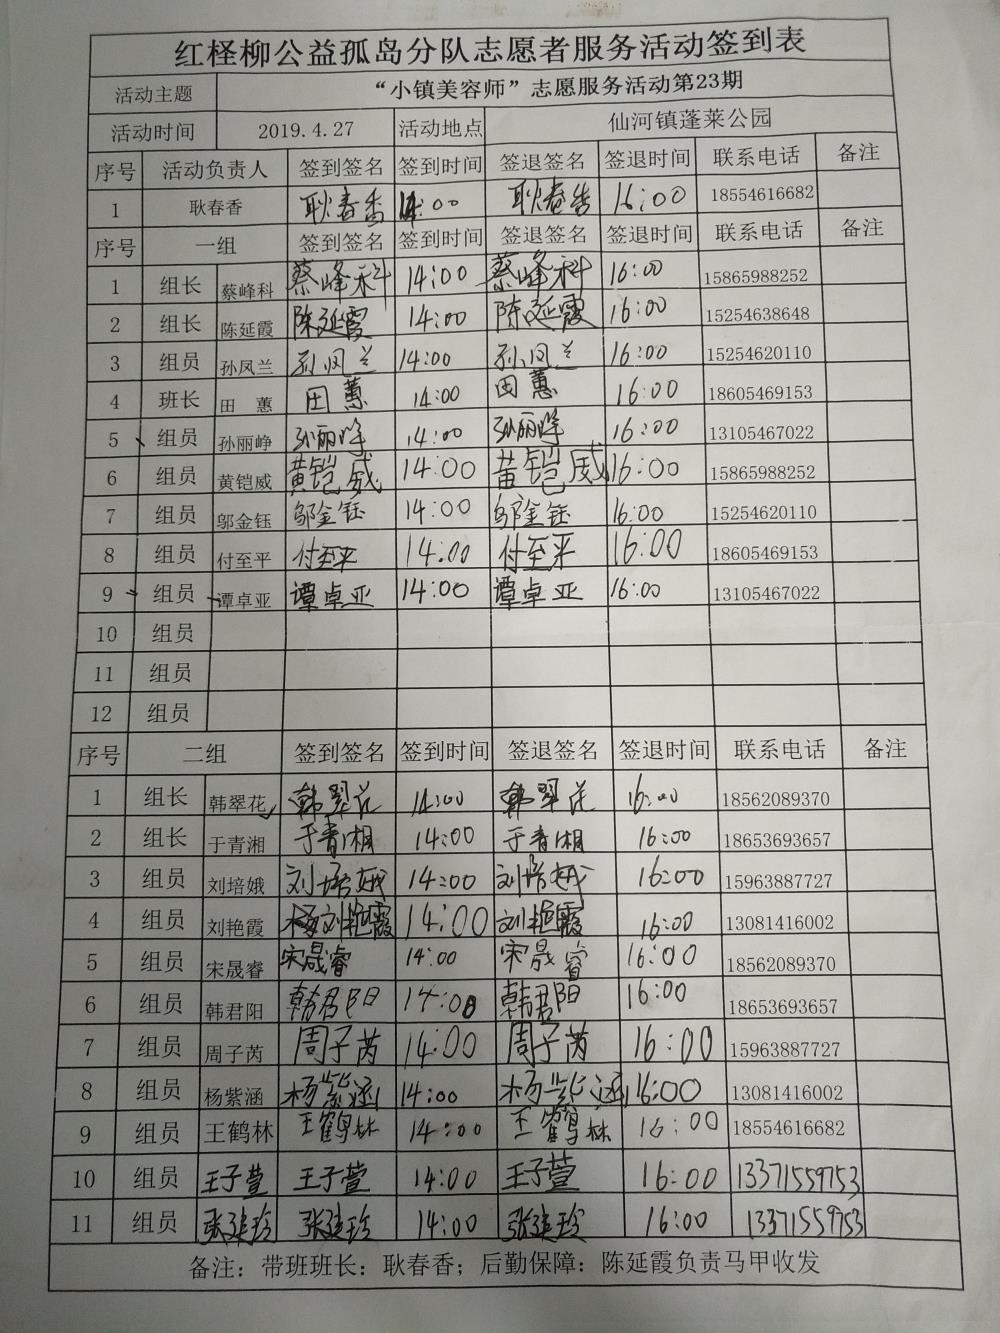 红柽柳公益孤岛分队志愿者服务活动签到表
活动主题 “小镇美容师”志愿服务活动第23期
活动时间 2019.4.27 活动地点 仙河镇蓬莱公园
序号 活动负责人 签到签名 签到时间 签退签名 签退时间 联系电话 备注
1 耿春香 耿春香 14:00 耿春香 16:00 18554616682
序号 一组 签到签名 签到时间 签退签名 签退时间 联系电话 备注
1 组长 蔡峰科 蔡峰科 14:00 蔡峰科 16:00 15865988252
2 组长 陈延霞 陈延霞 14:00 陈延霞 16:00 15254638648
3 组员 孙凤兰 孙凤兰 14:00 孙凤兰 16:00 15254620110
4 班长 田 蕙 田蕙 14:00 田蕙 16:00 18605469153
5 组员 孙丽峥 孙丽峥 14:00 孙丽峥 16:00 13105467022
6 组员 黄铠威 黄铠威 14:00 黄铠威 16:00 15865988252
7 组员 邬金钰 邬金钰 14:00 邬金钰 16:00 15254620110
8 组员 付至平 付至平 14:00 付至平 16:00 18605469153
9 组员 谭卓亚 谭卓亚 14:00 谭卓亚 16:00 13105467022
10 组员
11 组员
12 组员
序号 二组 签到签名 签到时间 签退签名 签退时间 联系电话 备注
1 组长 韩翠花 韩翠花 14:00 韩翠花 16:00 18562089370
2 组长 于青湘 于青湘 14:00 于青湘 16:00 18653693657
3 组员 刘培娥 刘培娥 14:00 刘培娥 16:00 15963887727
4 组员 刘艳霞 刘艳霞 14:00 刘艳霞 16:00 13081416002
5 组员 宋晟睿 宋晟睿 14:00 宋晟睿 16:00 18562089370
6 组员 韩君阳 韩君阳 14:00 韩君阳 16:00 18653693657
7 组员 周子芮 周子芮 14:00 周子芮 16:00 15963887727
8 组员 杨紫涵 杨紫涵 14:00 杨紫涵 16:00 13081416002
9 组员 王鹤林 王鹤林 14:00 王鹤林 16:00 18554616682
10 组员 王子萱 王子萱 14:00 王子萱 16:00 13371559753
11 组员 张建玲 张建玲 14:00 张建玲 16:00 13371559753
备注：带班班长：耿春香；后勤保障：陈延霞负责马甲收发